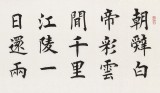 朝辭白
帝彩雲
間千里
江陵一
日還兩